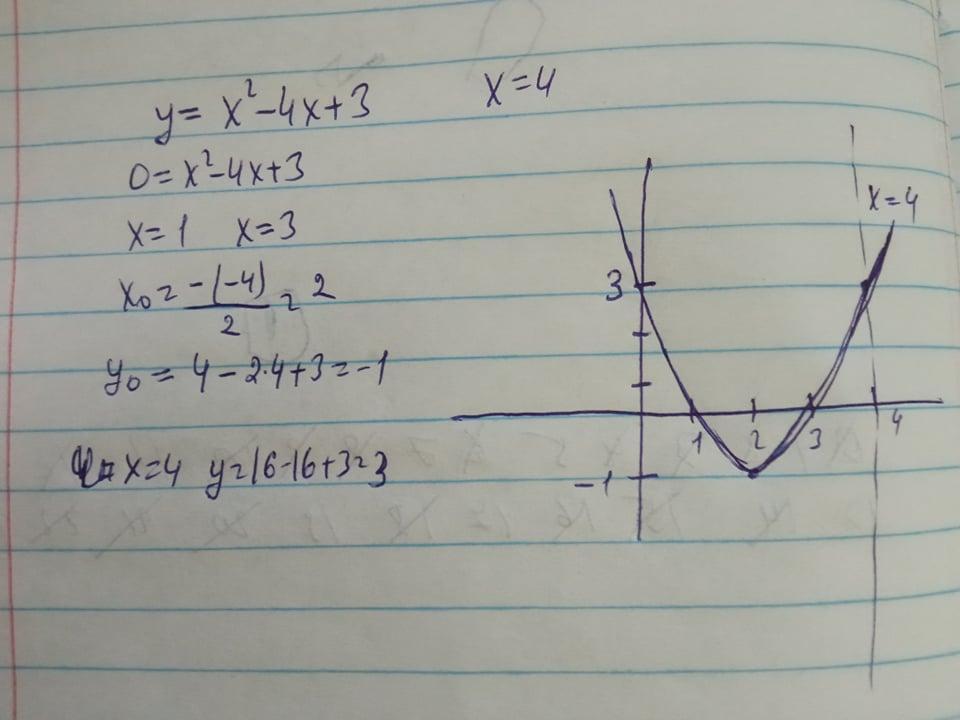 y = x² - 4x + 3
x = 4
0 = x² - 4x + 3
x = 1 x = 3
x₀ = -(-4)/2 = 2
y₀ = 4 - 2·4 + 3 = -1
x = 4 y = 16 - 16 + 3 = 3
x = 4
3
1 2 3 4
-1